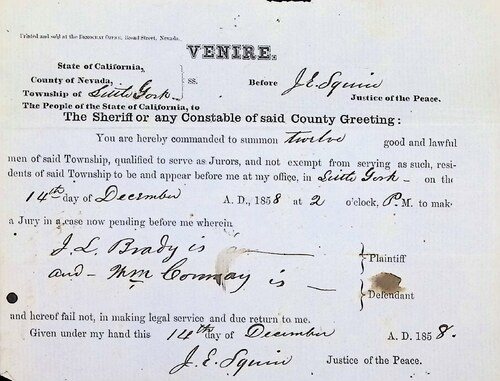 Printed and sold at the DEMOCRAT OFFICE, Broad Street, Nevada.
VENIRE.
State of California,
County of Nevada,
Township of Little York
ss.
Before J. E. Squire
Justice of the Peace.
The People of the State of California, to
The Sheriff or any Constable of said County Greeting:
You are hereby commanded to summon twelve good and lawful
men of said Township, qualified to serve as Jurors, and not exempt from serving as such, resi-
dents of said Township to be and appear before me at my office, in Little York - on the
14th day of December A. D., 1858 at 2 o'clock, P.M. to make
a Jury in a case now pending before me wherein
J. L. Brady is Plaintiff
and - Wm Conway is - Defendant
and hereof fail not, in making legal service and due return to me.
Given under my hand this 14th day of December A. D. 1858.
J. E. Squire Justice of the Peace.